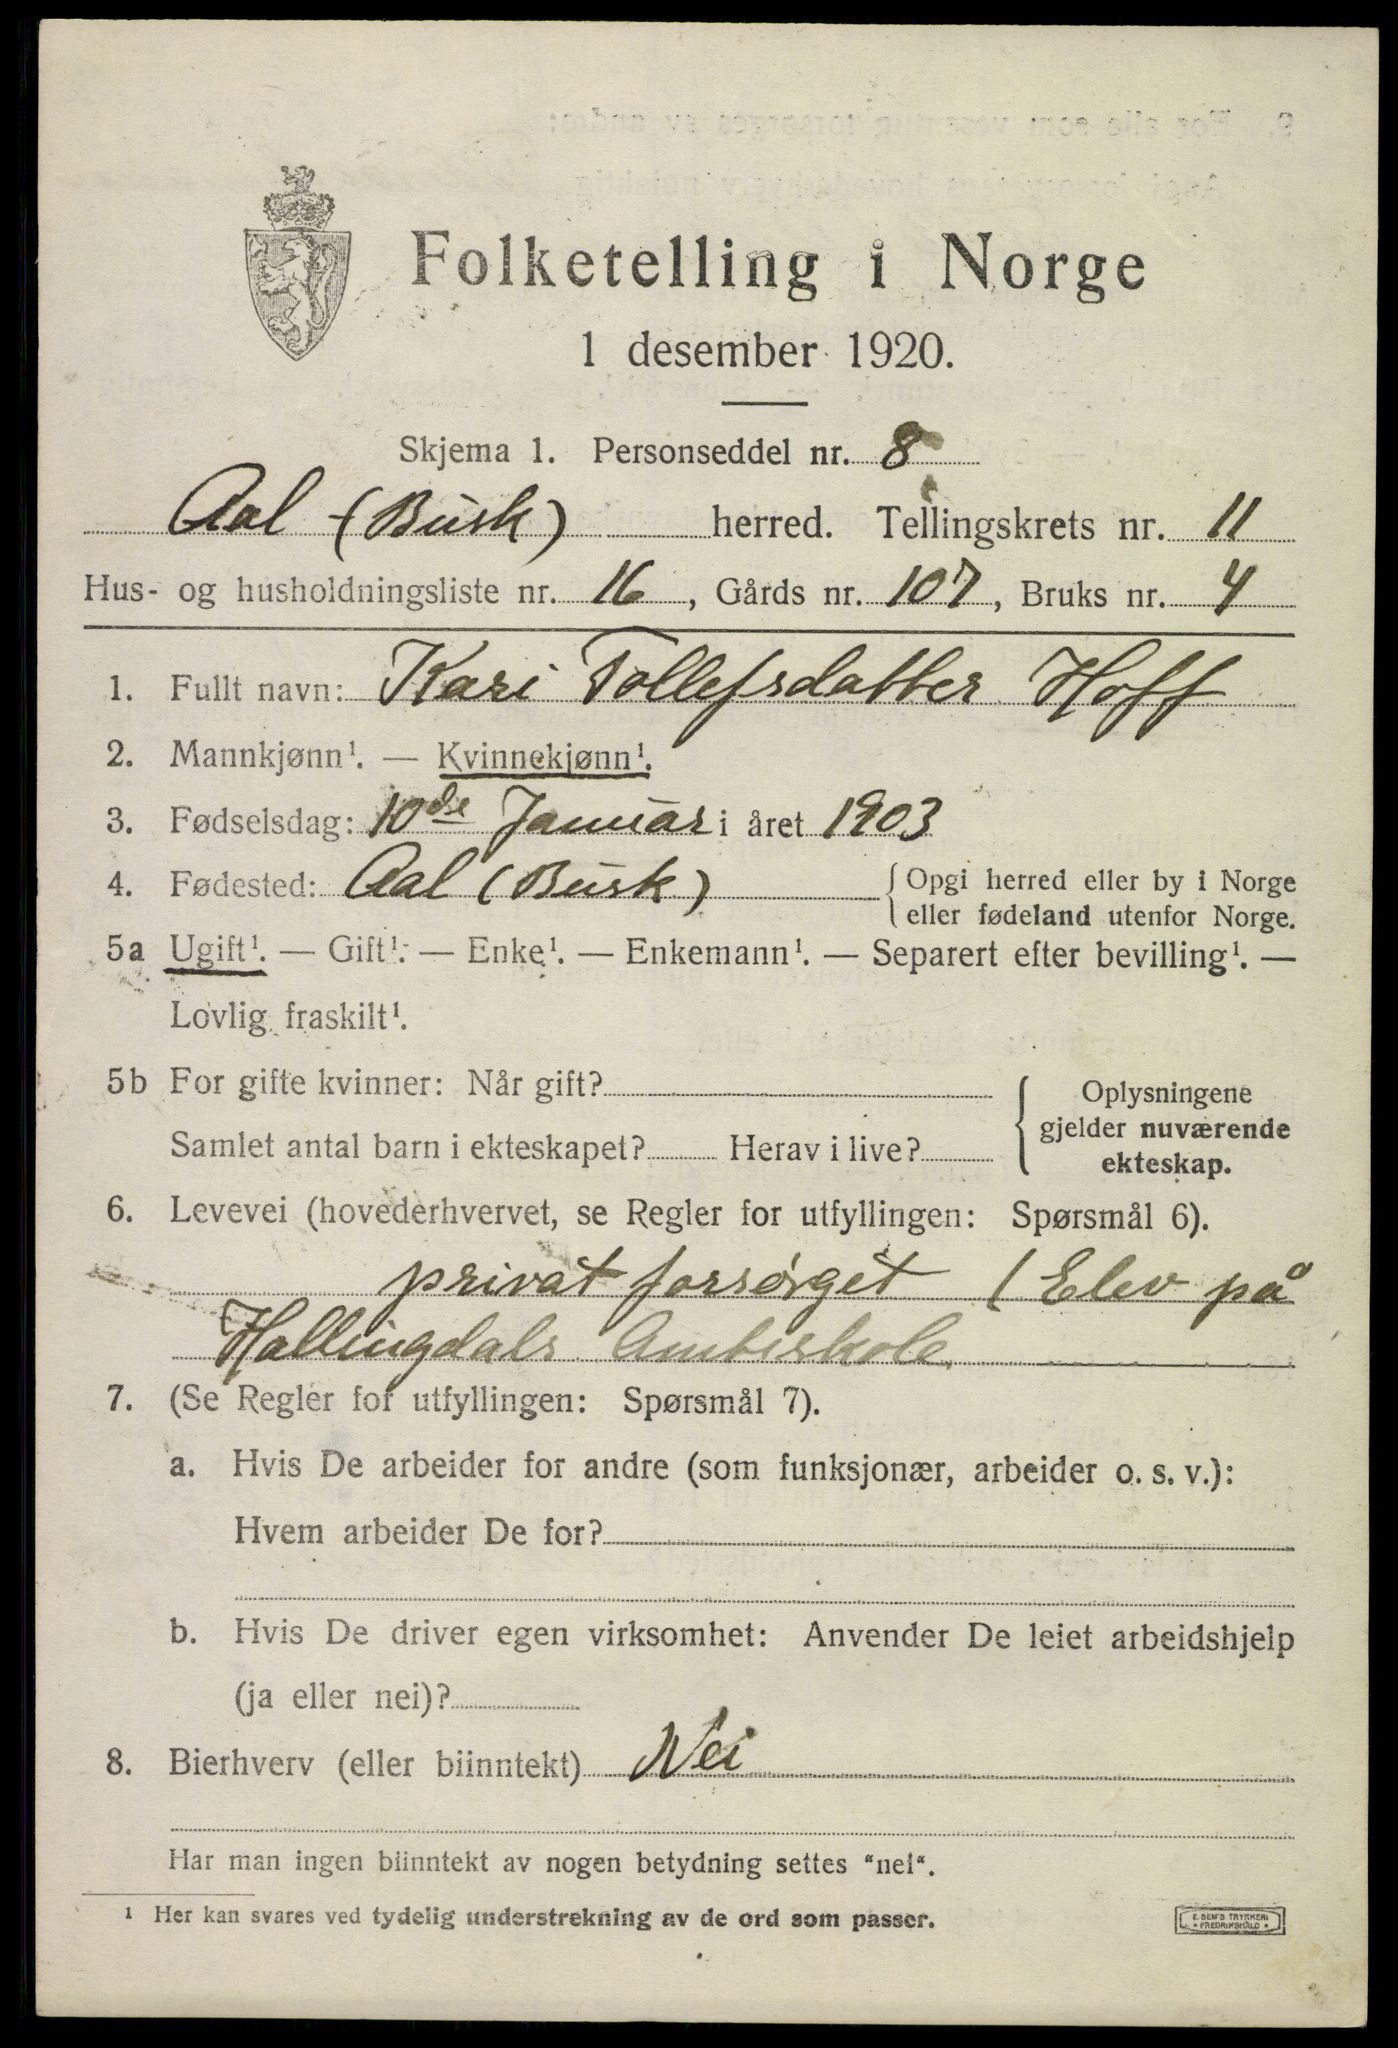 Folketelling i Norge
1 desember 1920.
Skjema 1. Personseddel nr. 8
Aal (Busk) herred. Tellingskrets nr. 11
Hus- og husholdningsliste nr. 16, Gårds nr. 107, Bruks nr. 4
1. Fullt navn: Kari Tollefsdatter Hoff
2. Mannkjønn¹. — Kvinnekjønn¹.
3. Fødselsdag: 10de Januar i året 1903
4. Fødested: Aal (Busk) { Opgi herred eller by i Norge
eller fødeland utenfor Norge.
5a Ugift¹. — Gift¹. — Enke¹. — Enkemann¹. — Separert efter bevilling¹. —
Lovlig fraskilt¹.
5b For gifte kvinner: Når gift?
Samlet antal barn i ekteskapet? Herav i live?
{ Oplysningene
gjelder nuværende
ekteskap.
6. Levevei (hovederhvervet, se Regler for utfyllingen: Spørsmål 6).
privat forsørget (Elev på
Hallingdals Amtsskole
7. (Se Regler for utfyllingen: Spørsmål 7).
a. Hvis De arbeider for andre (som funksjonær, arbeider o. s. v.):
Hvem arbeider De for?
b. Hvis De driver egen virksomhet: Anvender De leiet arbeidshjelp
(ja eller nei)?
8. Bierhverv (eller biinntekt) Nei
Har man ingen biinntekt av nogen betydning settes “nei“.
¹ Her kan svares ved tydelig understrekning av de ord som passer.
E. SEM'S TRYKKERI
* FREDRIKSHALD *